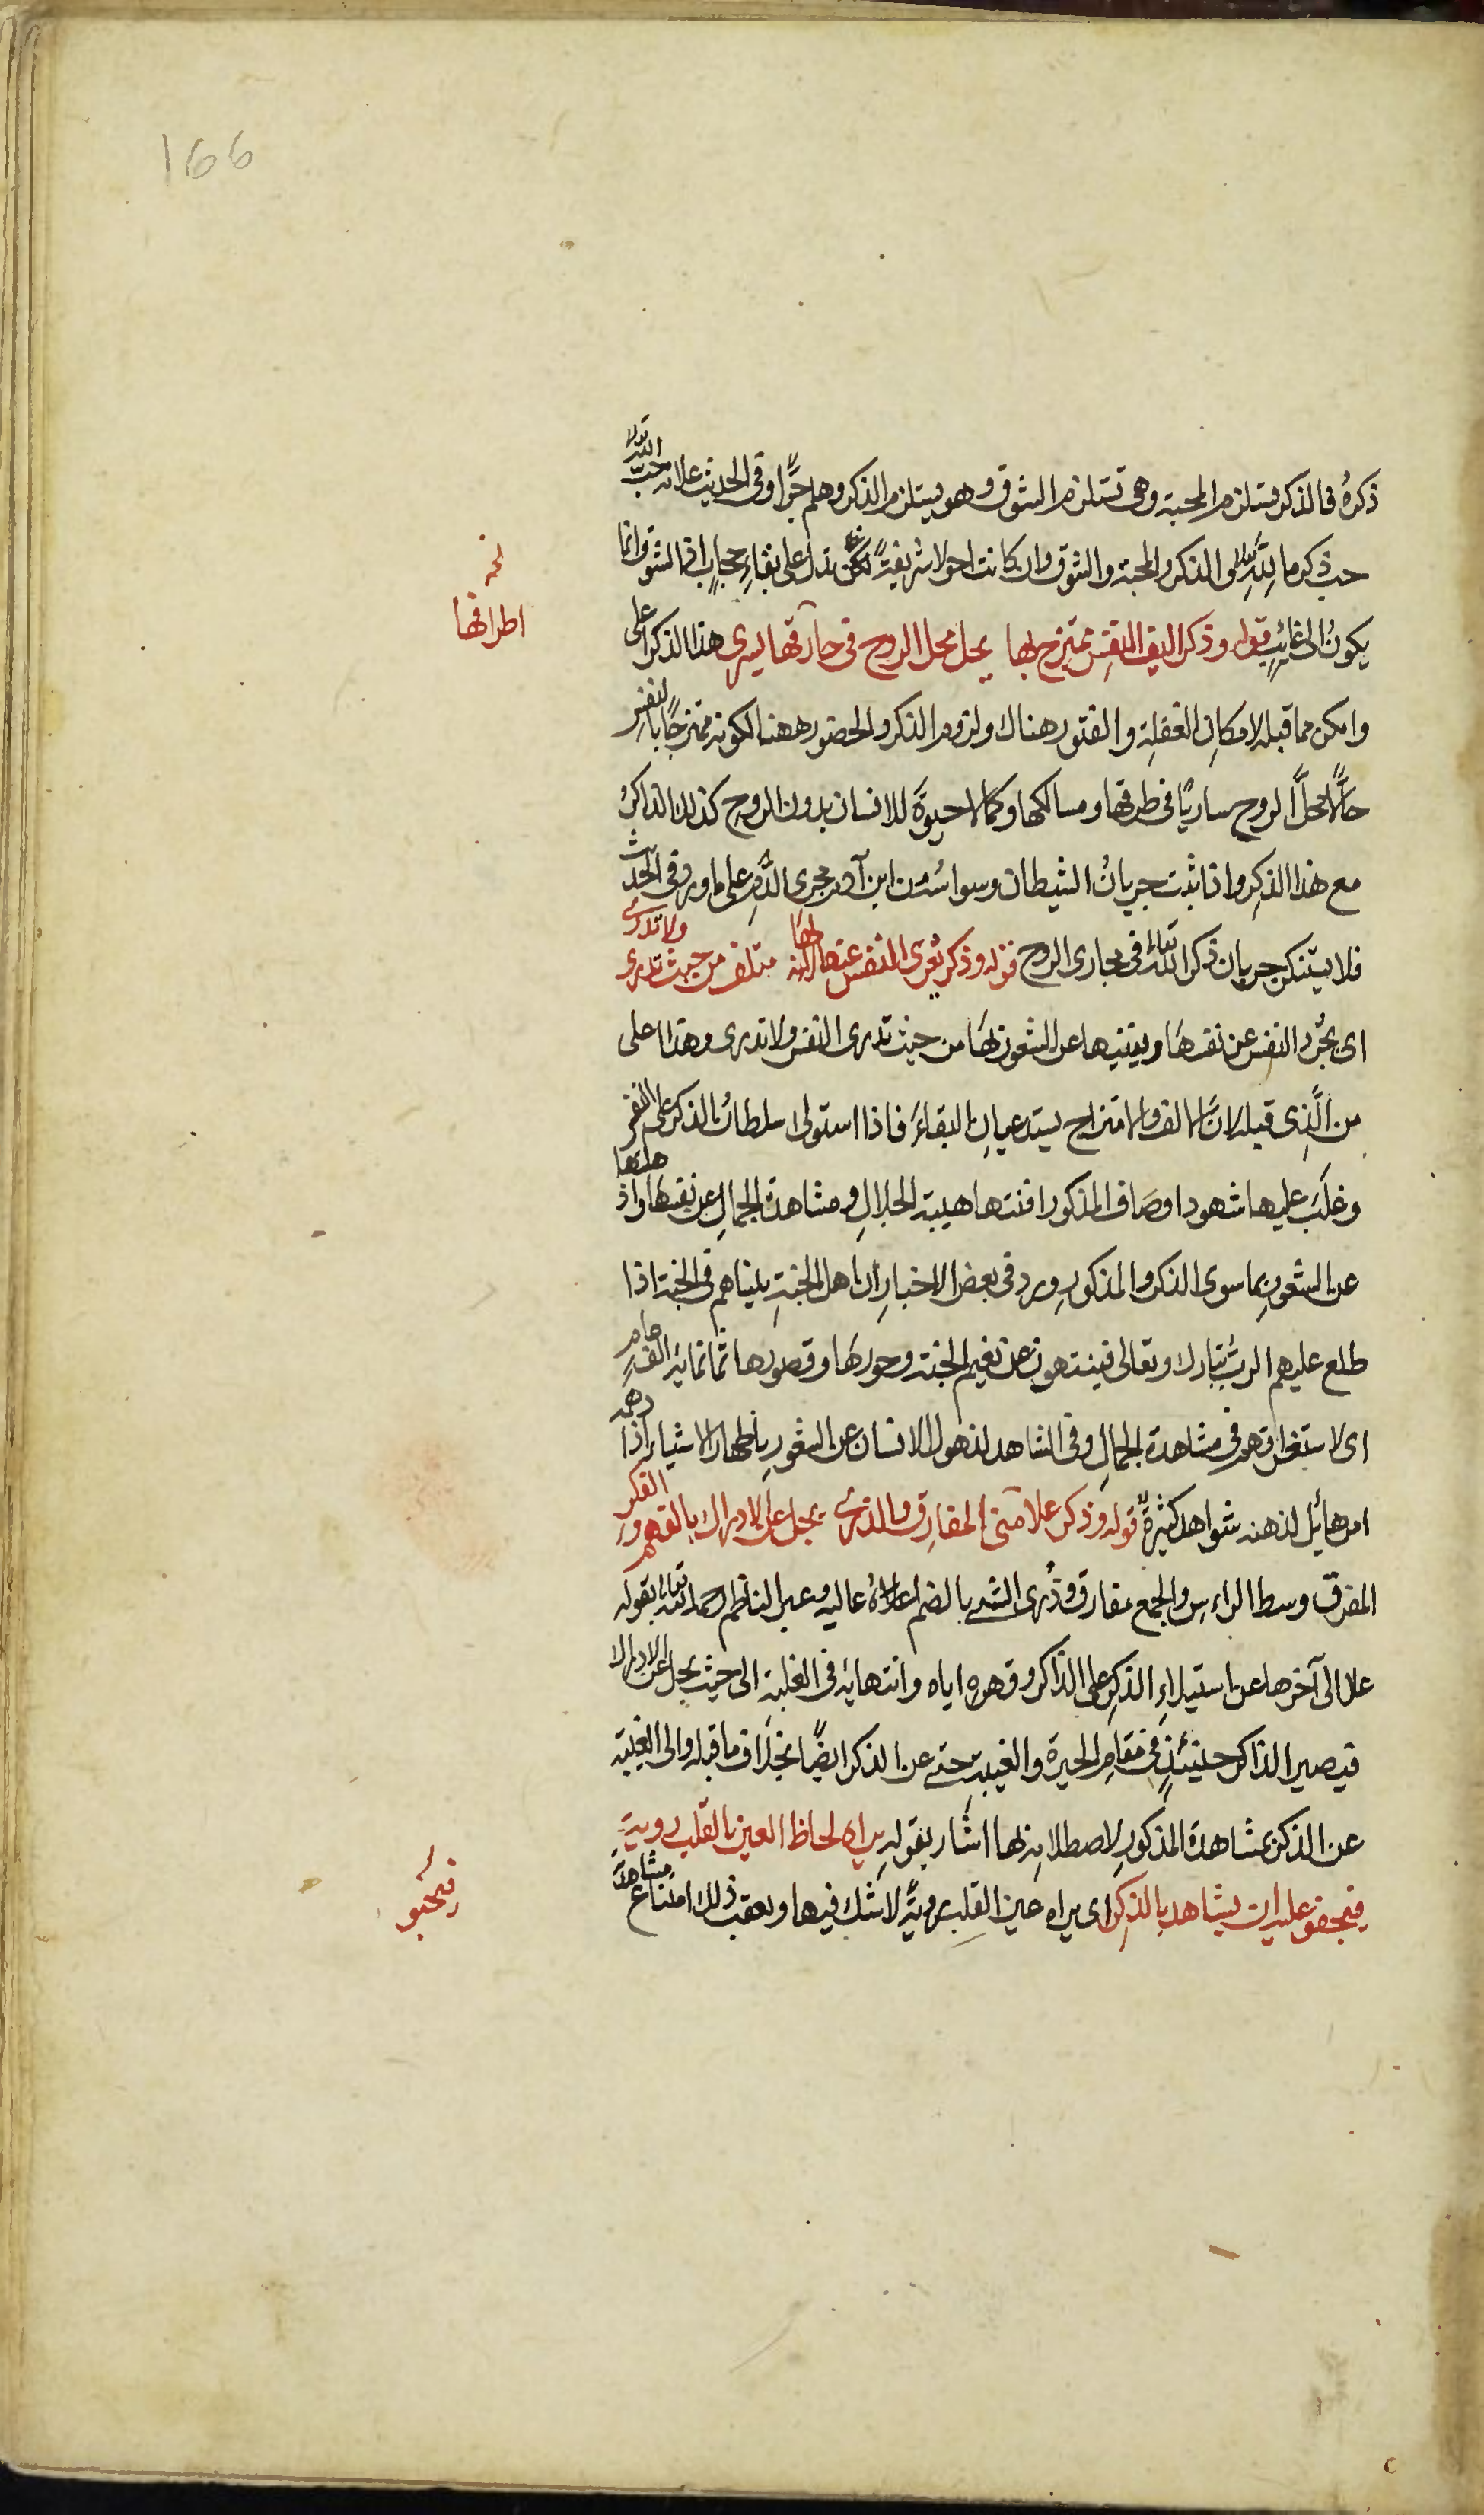 166
ذكرهُ فالذكر يستلزم المحبة وهى تستلزم الشوق وهو يستلزم الذكر وهلم جرًّا وفى الحديث علامة حبّ الله تعالى
حب ذكره ما لله تعالى والذكر والمحبة والشوق وان كانت احوالا شريفةً لكن تدل على بقاءِ حجابٍ اذ الشوق انما
يكونُ الى غائبٍ قوله وذكر اليف النفس ممتزج بها يحل محل الروح فى طرقها يسرى هذا الذكر اعلى
نخـ
اطرافها
وامكن مما قبله لامكانِ الغفلةِ والفتور هناك ولزوم الذكر والحضور ههنا لكونه ممتزجًا بالنفس
حالًّا محلَّ الروح ساريًا فى طرقها ومسالكها وكما لا حيوةَ للانسان بدون الروحِ كذلك الذاكرُ
مع هذا الذكرِ واذا ثبت جريانُ الشيطان وسواسُه من ابن آدم مجرى الدمِ على ما ورد فى الحديث
فلا يستنكر جريان ذكر الله تعالى فى مجارى الروح قوله وذكر يعرى النفس عنها لانه لها متلف من حيث تدرى ولا تدرى
اى يجُرد النفس عن نفسهَا ويفنيها عن الشعور بهَا من حيث تدرى النفس ولا تدرى وهذا اعلى
من الَّذِى قبله لانّ الالف والامتزاج يستدعيانِ البقاءَ فاذا استولى سلطانُ الذكر على النفس
وغلَبَ عليها شهود اوصَاف المذكور افنتها هيبة الجلالِ ومشاهدة الجمالِ عن نفسهَا واذهلتها
عن الشعورِ بما سوى الذكر والمذكورِ وورد فى بعض الاخبارِ ان اهل الجنةِ بيناهم فى الجنة اذا
طلع عليهم الربُّ تبارك وتعالى فينتهون عن نعيم الجنة وحورهَا وقصورها ثمانمايةِ الف عام
اى لاستغراقهم فى مشاهدة الجمالِ وفى الشاهد لذهول الانسان عن الشعورِ باظهار الاشياءِ اذا دهمه
امر هائل لذهنه شواهد كثيرةٌ قوله وذكر علا منى المفارق والذرى يجل عن الادراك بالفهم والفكر
المفرق وسط الراءسِ والجمع مفارق وذُرى الشئ بالضم اعلاهُ عاليه وعبر الناظم رحمه الله تعالى بقوله
علا الى آخرها عن استيلاءِ الذكرِ على الذاكر وقهره اياه وانتهايه فى الغلبة الى حيث يجل عن الادراك
فيصير الذاكر حينئذٍ فى مقامِ الحيرة والغيبةِ حتى عن الذكر ايضًا بخلاف ما قبله والى الغيبة
عن الذكر بمشاهدة المذكورِ لاصطلامه بها اشار بقوله يراه لحاظ العين بالقلب رويةٍ
فيجفو عليه ان يشاهد بالذكر اى يراه عين القلب رويةً لا شك فيها ويعقب ذلك امتناع مشاهدة
فيحبو